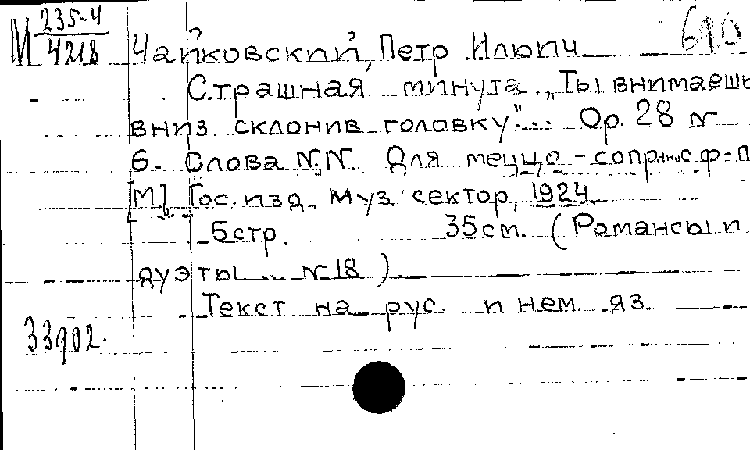 М 235-4
4218
690
Чайковский, Петр Ильич
Страшная минута. „Ты внимаешь
вниз склонив головку"... Op. 28 №
6. Слова N.N. Для меццо-сопр. с ф-п
[М], Гос. изд. Муз. сектор, 1924
5 стр. 35 см. (Романсы и
дуэты... № 18)
Текст на рус. и нем. яз.
33902.